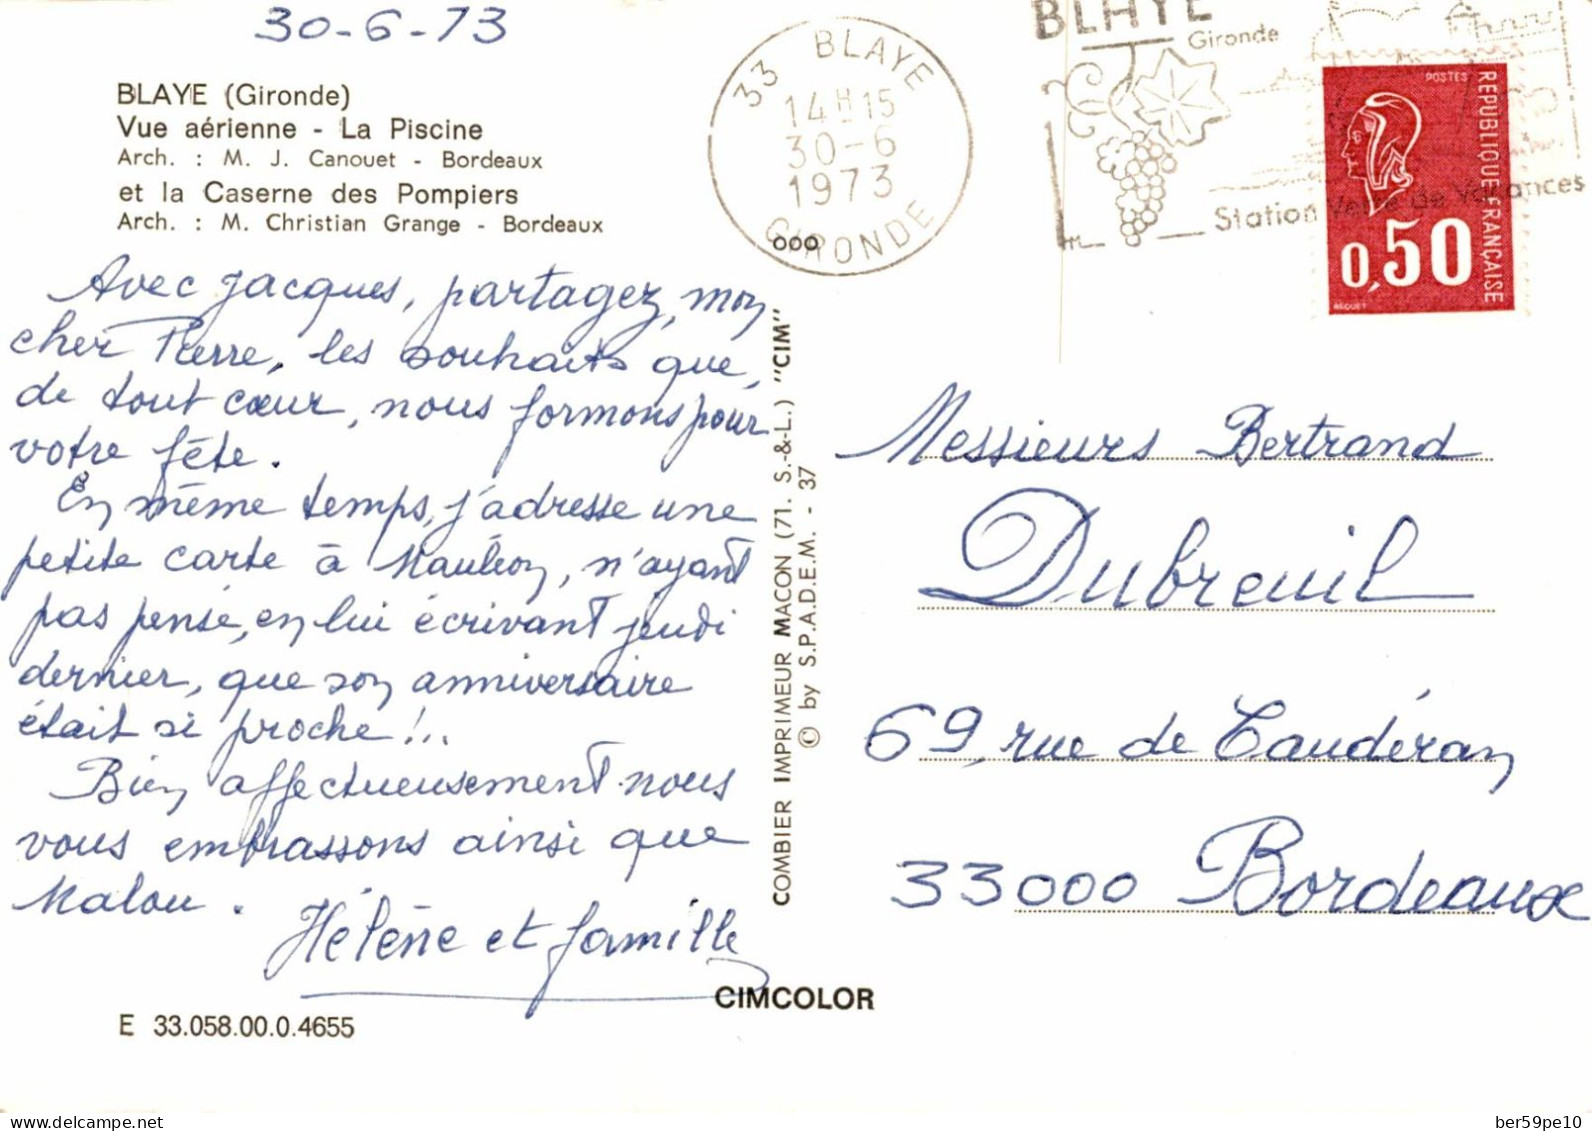 30-6-73
BLAYE (Gironde)
Vue aérienne - La Piscine
Arch. : M. J. Canouet - Bordeaux
et la Caserne des Pompiers
Arch. : M. Christian Grange - Bordeaux
Avec Jacques, partagez, mon
cher Pierre, les souhaits que,
de tout cœur, nous formons pour
votre fête.
En même temps, j'adresse une
petite carte à Mauléon, n'ayant
pas pensé, en lui écrivant jeudi
dernier, que son anniversaire
était si proche !..
Bien affectueusement nous
vous embrassons ainsi que
Malou.
Hélène et famille
E 33.058.00.0.4655
CIMCOLOR
COMBIER IMPRIMEUR MACON (71. S.-&-L.) "CIM"
© by S.P.A.D.E.M. - 37
33 BLAYE
14H15
30-6
1973
GIRONDE
000
BLAYE
Gironde
Station Verte de Vacances
POSTES
REPUBLIQUE FRANÇAISE
0,50
BEQUET
Messieurs Bertrand
Dubreuil
69, rue de Caudéran
33000 Bordeaux
delcampe.net
ber59pe10